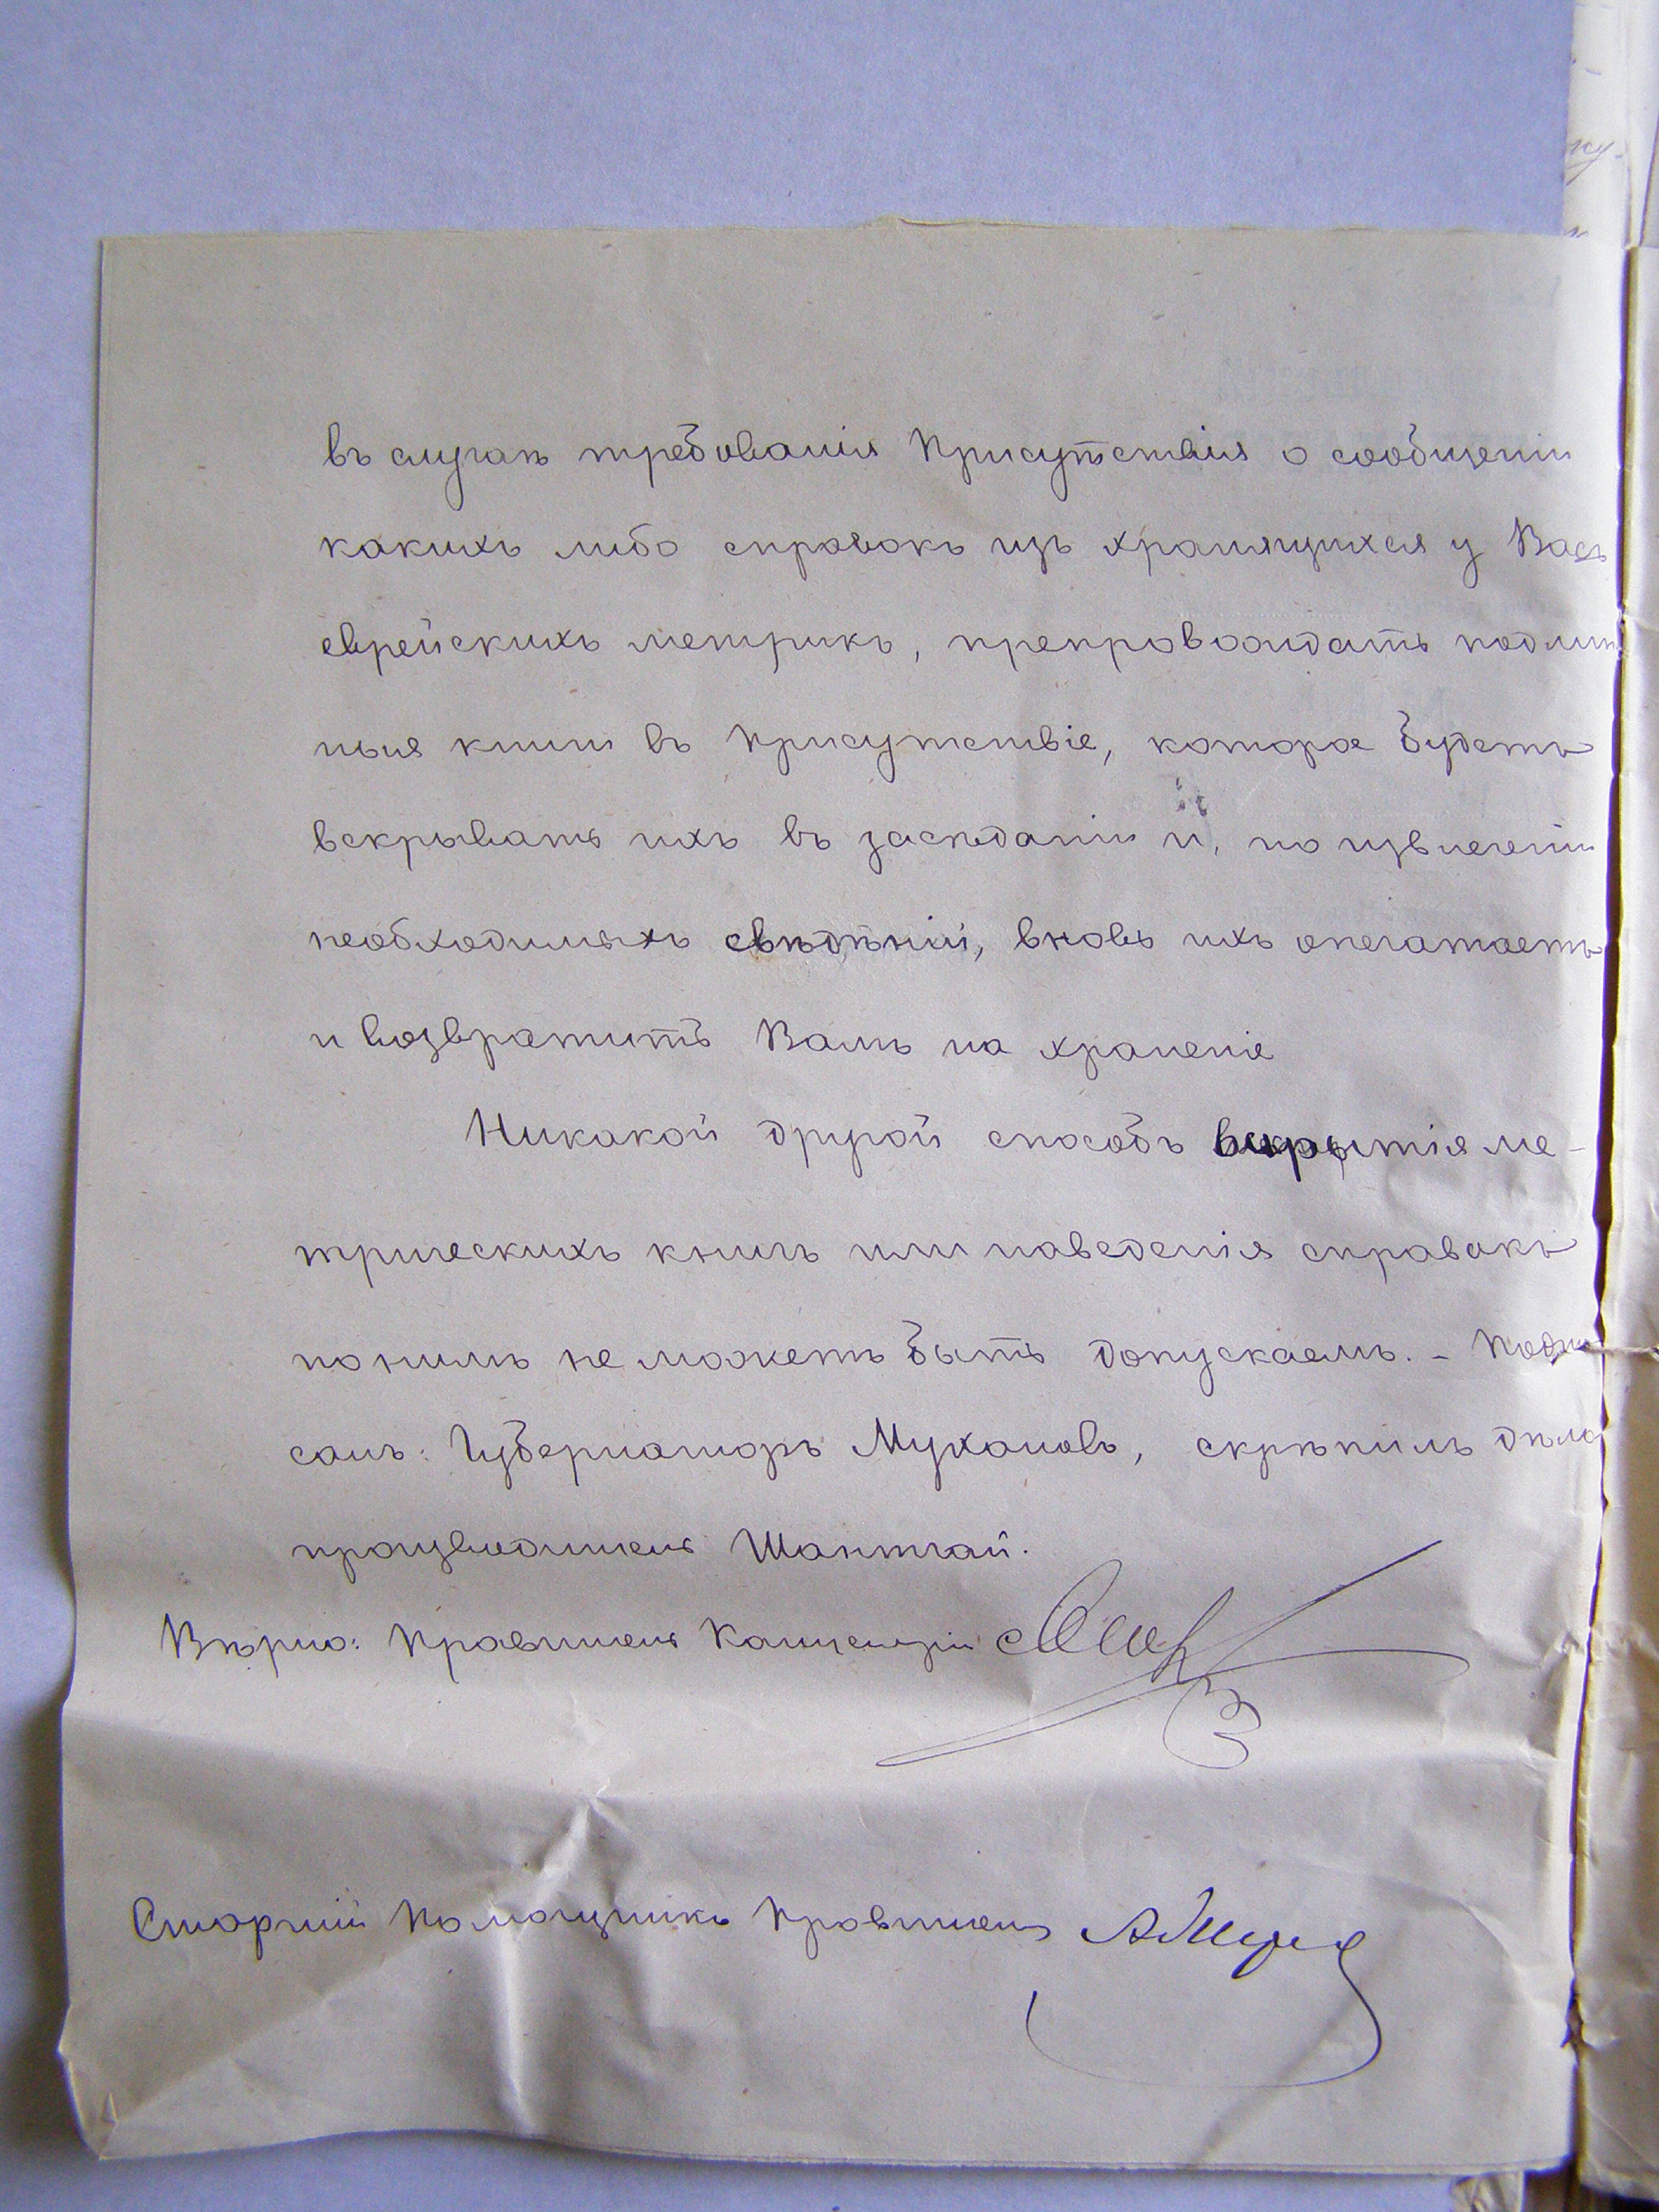 въ случаѣ требованія Присутствія о сообщеніи
какихъ либо справокъ изъ хранящихся у Васъ
еврейскихъ метрикъ, препровождать подлин
ныя книги въ Присутствіе, которое будетъ
вскрывать ихъ въ засѣданіи и, по извлеченіи
необходимыхъ свѣдѣній, вновь ихъ опечатаетъ
и возвратитъ Вамъ на храненіе
Никакой другой способъ вскрытія ме-
трическихъ книгъ или наведенія справокъ
по нимъ не можетъ быть допускаемъ. - Подпи
салъ: Губернаторъ Мухановъ, скрѣпилъ дѣло
производитель Шантгай.
Вѣрно: Правитель Канцеляріи
Старшій Помощникъ Правителя